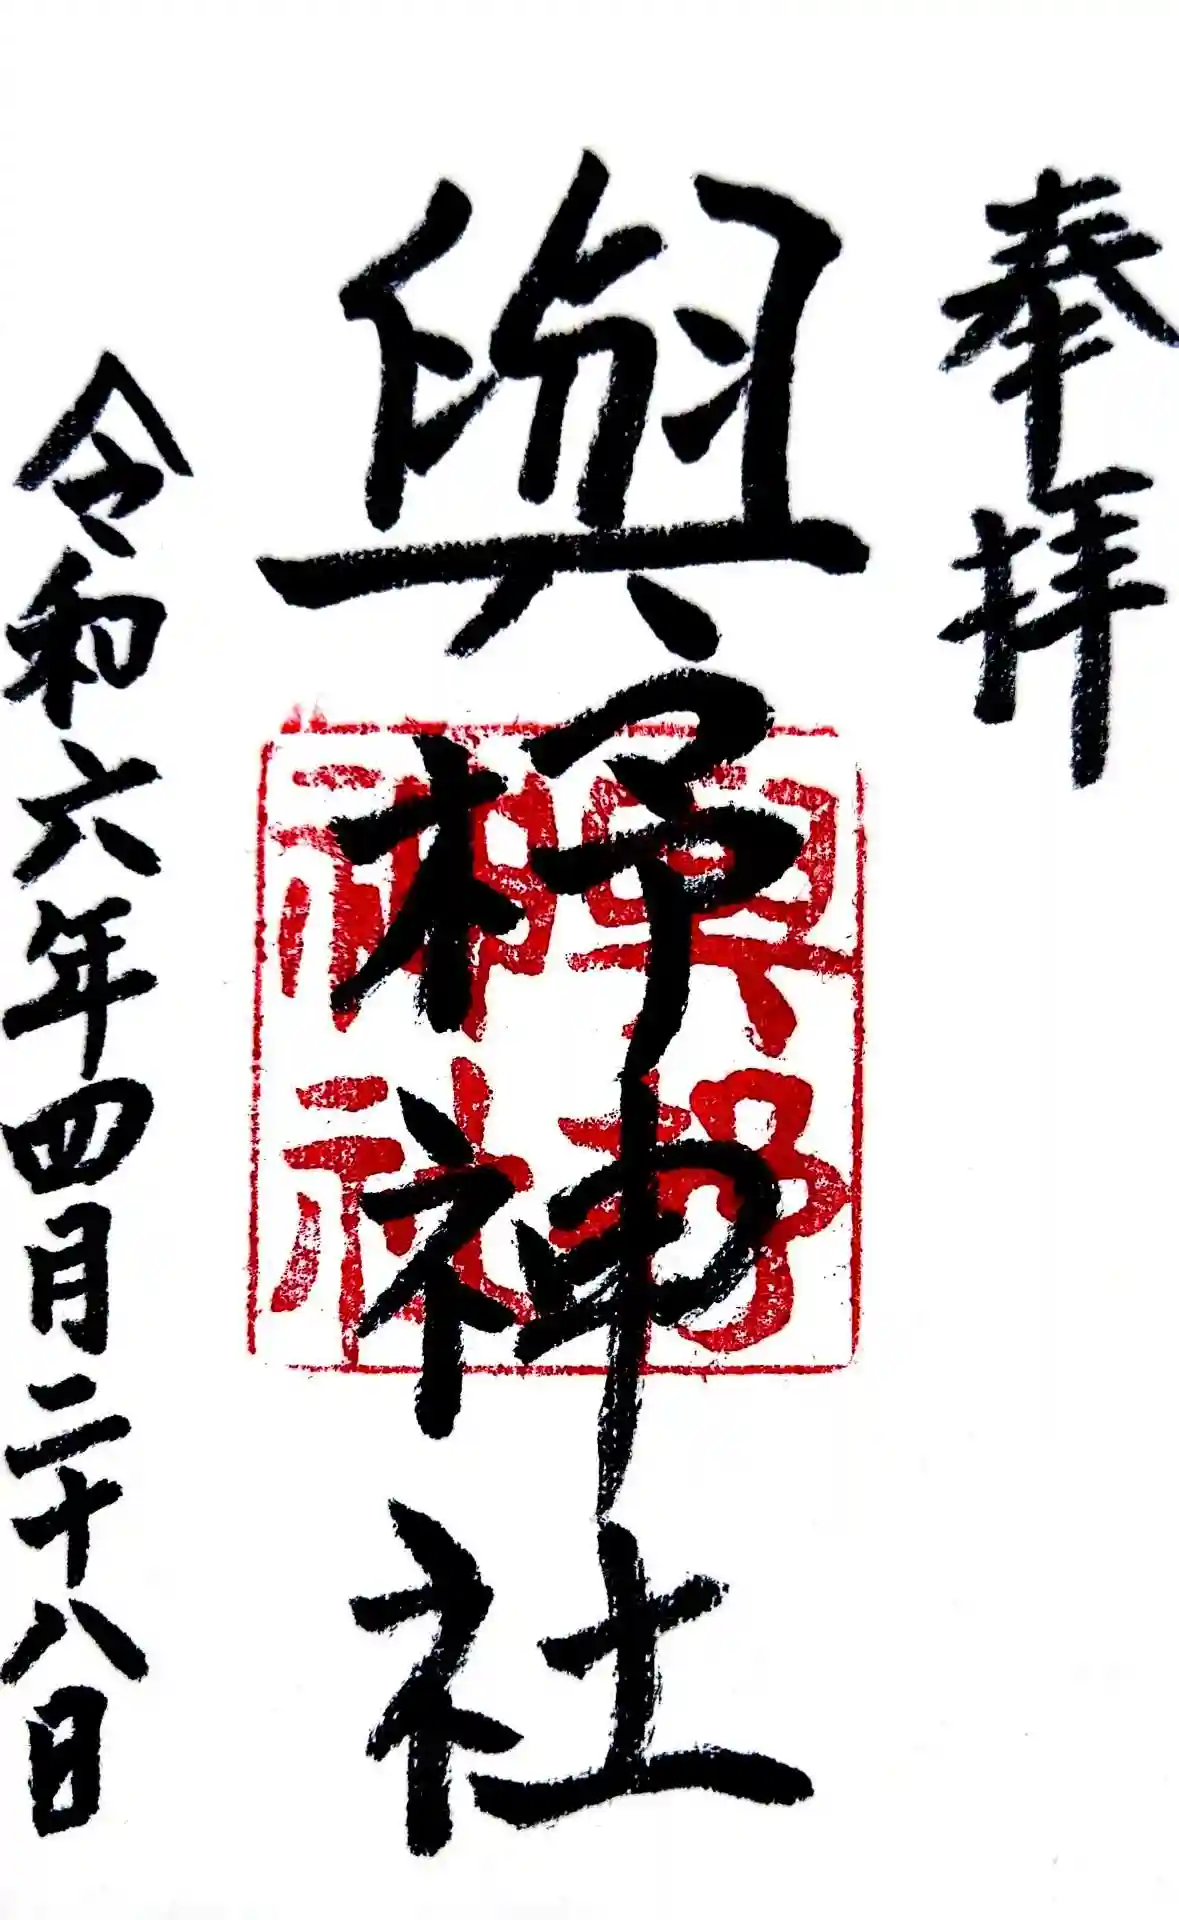 奉拝
與杼神社
與杼神社
令和六年四月二十八日